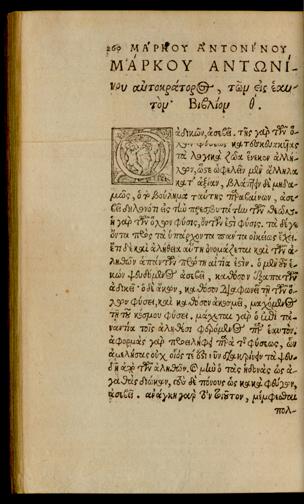 260 ΜΑΡΚΟΥ ΑΝΤΟΝΙΝΟΥ
ΜΑΡΚΟΥ ΑΝΤΩΝΙ-
νου αὐτοκράτορος, τῶν εἰς ἑαυ-
τὸν Βιβλίον θ.
Ὁ ἀδικῶν, ἀσεβεῖ. τῆς γὰρ τῶν ὅ-
λων φύσεως κατεσκευακυίας
τὰ λογικὰ ζῶα ἕνεκεν ἀλλή-
λων, ὥστε ὠφελεῖν μὲν ἄλληλα
κατ' ἀξίαν, βλάπτειν δὲ μηδα-
μῶς, ὁ τὸ βούλημα ταύτης παραβαίνων, ἀσε-
βεῖ δηλονότι εἰς τὴν πρεσβυτάτην τῶν θεῶν.
ἡ γὰρ τῶν ὅλων φύσις, ὄντων ἐστὶ φύσις. τὰ δέ γε
ὄντα πρὸς τὰ ὑπάρχοντα πάντα οἰκείως ἔχει.
ἔτι δὲ καὶ ἀλήθεια αὕτη ὀνομάζεται καὶ τῶν ἀ-
ληθῶν ἁπάντων πρώτη αἰτία ἐστίν. ὁ μὲν οὖν ἑ-
κὼν ψευδόμενος ἀσεβεῖ, καθόσον ἐξαπατῶν
ἀδικεῖ· ὁ δὲ ἄκων, καθόσον διαφωνεῖ τῇ τῶν
ὅλων φύσει, καὶ καθόσον ἀκοσμεῖ, μαχόμενος
τῇ τοῦ κόσμου φύσει. μάχεται γὰρ ὁ ἐπὶ τἀ-
ναντία τοῖς ἀληθέσι φερόμενος παρ' ἑαυτόν.
ἀφορμὰς γὰρ προειλήφει παρὰ τῆς φύσεως, ὧν
ἀμελήσας οὐχ οἷός τέ ἐστι νῦν διακρίνειν τὰ ψευ-
δῆ ἀπὸ τῶν ἀληθῶν. καὶ μὴν ὁ τὰς ἡδονὰς ὡς ἀ-
γαθὰς διώκων, τοὺς δὲ πόνους ὡς κακὰ φεύγων,
ἀσεβεῖ. ἀνάγκη γὰρ τὸν τοιοῦτον, μέμφεσθαι
πολ-